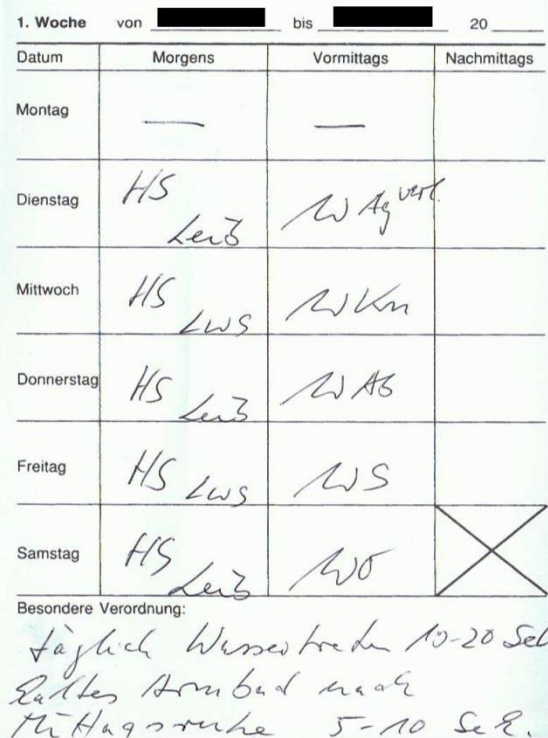 1. Woche von bis 20
Datum Morgens Vormittags Nachmittags
Montag — —
Dienstag HS Leib W Ag verl.
Mittwoch HS LWS W Kn
Donnerstag HS Leib W AB
Freitag HS LWS W S
Samstag HS Leib
Besondere Verordnung:
täglich Wassertreten 10-20 Sek
kaltes Armbad nach
Mittagsruhe 5-10 Sek.